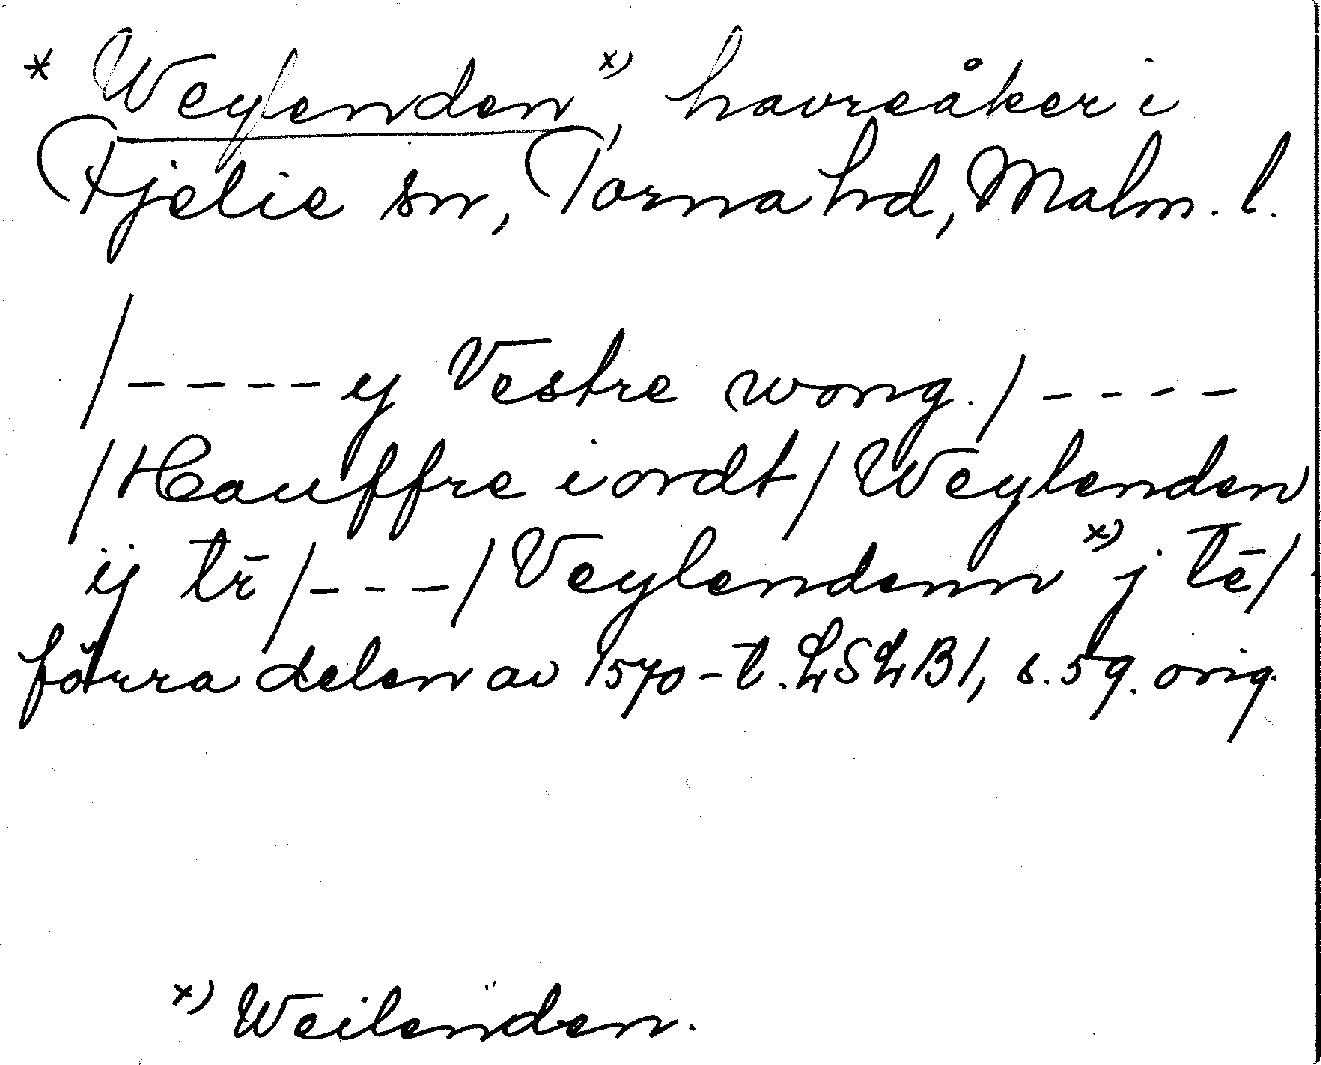 * Weylenden x), havreåker i
Fjelie sn, Torna hd, Malm. l.
/ - - - - y Vestre wong. / - - - -
/ Hauffre iordt / Weylenden
ij tr̄ / - - - / Veylendenn x) j tē /
förra delen av 1570-t. LSLB1, s. 59. orig.
x) Weilenden.